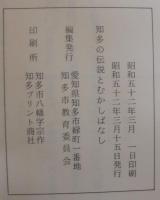 昭和五十二年三月　一日印刷
昭和五十二年三月十五日発行
知多の伝説とむかしばなし
愛知県知多市緑町一番地
編集発行　知多市教育委員会
知多市八幡字宗作
印刷所　知多プリント商社